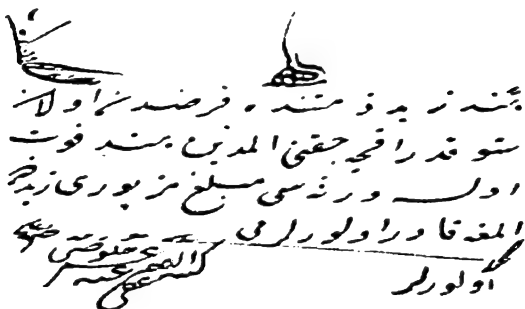 هند زيد ذمتنده قرضدن اولان
شو قدر اقچه حقنى المدين هند فوت
اولسه ورثه سى مبلغ مزبورى زيددن
المغه قادر اولورلر مى
اولورلر
كتبه الفقير
عفى عنه